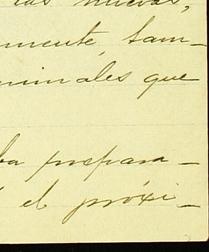 las nuevas,
mente, tam-
nimales que
ba prepara-
el próxi-